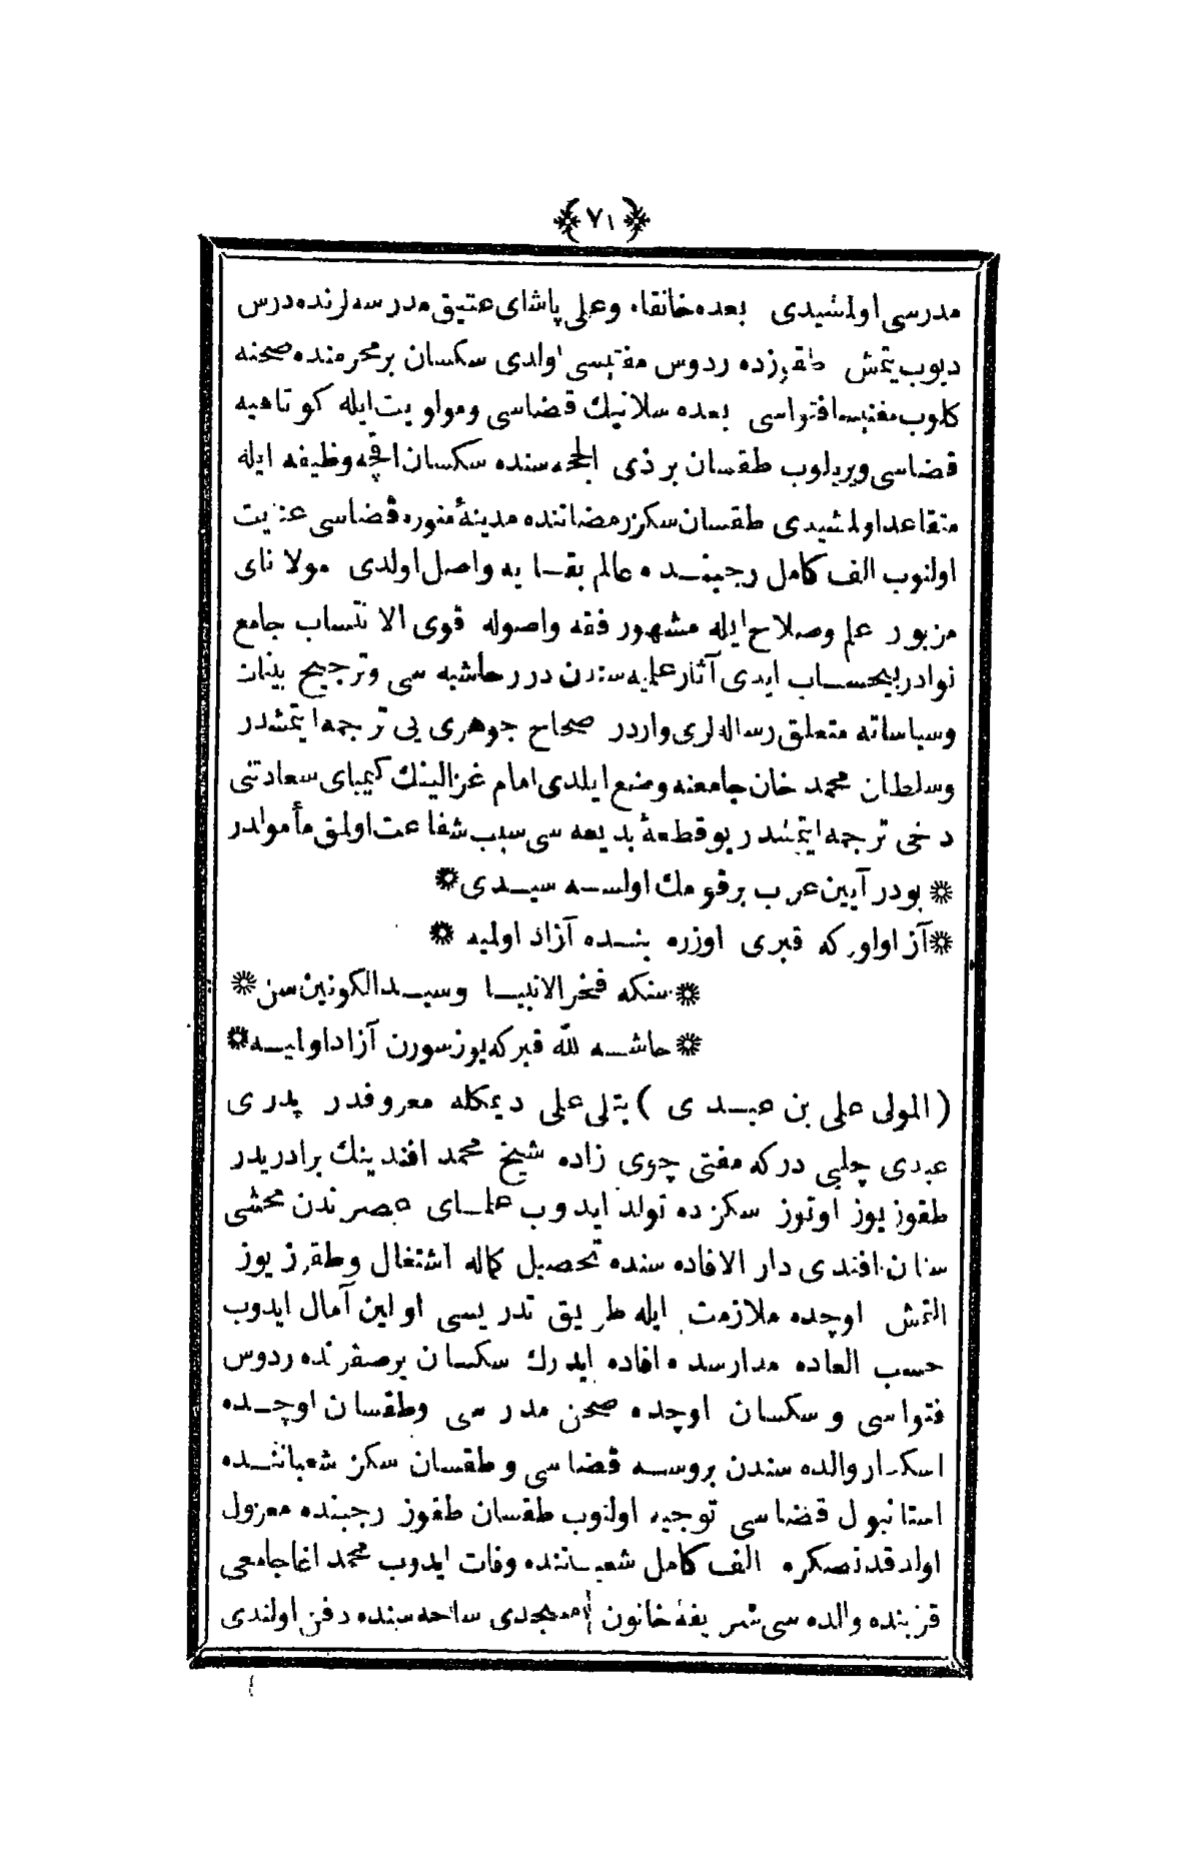 ﴿٧١﴾
مدرسی اولمشیدی بعده خانقاه وعلی پاشای عتیق مدرسه لرنده درس
دیوب یتمش طقوزده ردوس مفتیسی اولدی سکسان بر محرمنده صحنه
کلوب مغنیسا فتواسی بعده سلانیك قضاسی ومولویت ایله کوتاهیه
قضاسی ویریلوب طقسان بر ذی الحجه سنده سکسان اقچه وظیفه ایله
متقاعد اولمشیدی طقسان سکز رمضاننده مدینهٔ منوره قضاسی عنایت
اولنوب الف کامل رجبنده عالم بقایه واصل اولدی مولانای
مزبور علم وصلاح ایله مشهور فقه واصوله قوی الانتساب جامع
نوادر بیحساب ایدی آثار علمیه سندن درر حاشیه سی وترجیح بینات
وسیاساته متعلق رساله لری واردر صحاح جوهری یی ترجمه ایتمشدر
وسلطان محمد خان جامعنه وضع ایلدی امام غزالینك کیمیای سعادتنی
دخی ترجمه ایتمشدر بو قطعهٔ بدیعه سی سبب شفاعت اولمق مأمولدر
❋ بودر آیین عرب بر قومك اولسه سیدی ❋
❋ آز اولور که قبری اوزره بنده آزاد اولمیه ❋
❋ سنکه فخر الانبیا وسید الکونین سن ❋
❋ حاشه لله قبرکه یوز سورن آزاد اولمیه ❋
(المولی علی بن عبدی) بتلی علی دیمکله معروفدر پدری
عبدی چلبی درکه مفتی چوی زاده شیخ محمد افندینك برادریدر
طقوز یوز اوتوز سکزده تولد ایدوب علمای عصرندن محشی
سنان افندی دار الافاده سنده تحصیل کماله اشتغال وطقوز یوز
التمش اوچده ملازمت ایله طریق تدریسی اولین آمال ایدوب
حسب العاده مدارسده افاده ایدرك سکسان بر صفرنده ردوس
فتواسی و سکسان اوچده صحن مدرسی وطقسان اوچده
اسکدار والده سندن بروسه قضاسی و طقسان سکز شعباننده
استانبول قضاسی توجیه اولنوب طقسان طقوز رجبنده معزول
اولدقدنصکره الف کامل شعباننده وفات ایدوب محمد اغا جامعی
قربنده والده سی شریفه خاتون مسجدی ساحه سنده دفن اولندی